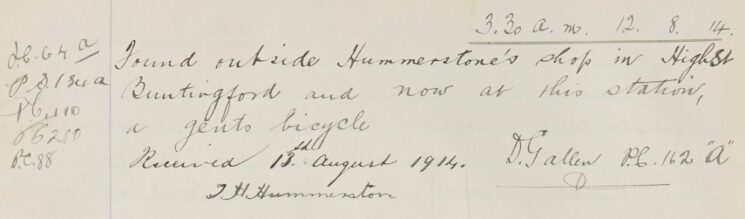 3.30 a.m. 12. 8. 14.
P.C. 64 a
Found outside Hummerstone's shop in High St
P.S. 134 a
Buntingford and now at this station,
P.C. 110
a gents bicycle
PC 210
P.C. 88
Received 13th August 1914. D. Gallen P.C. 162 "A"
J H Hummerston